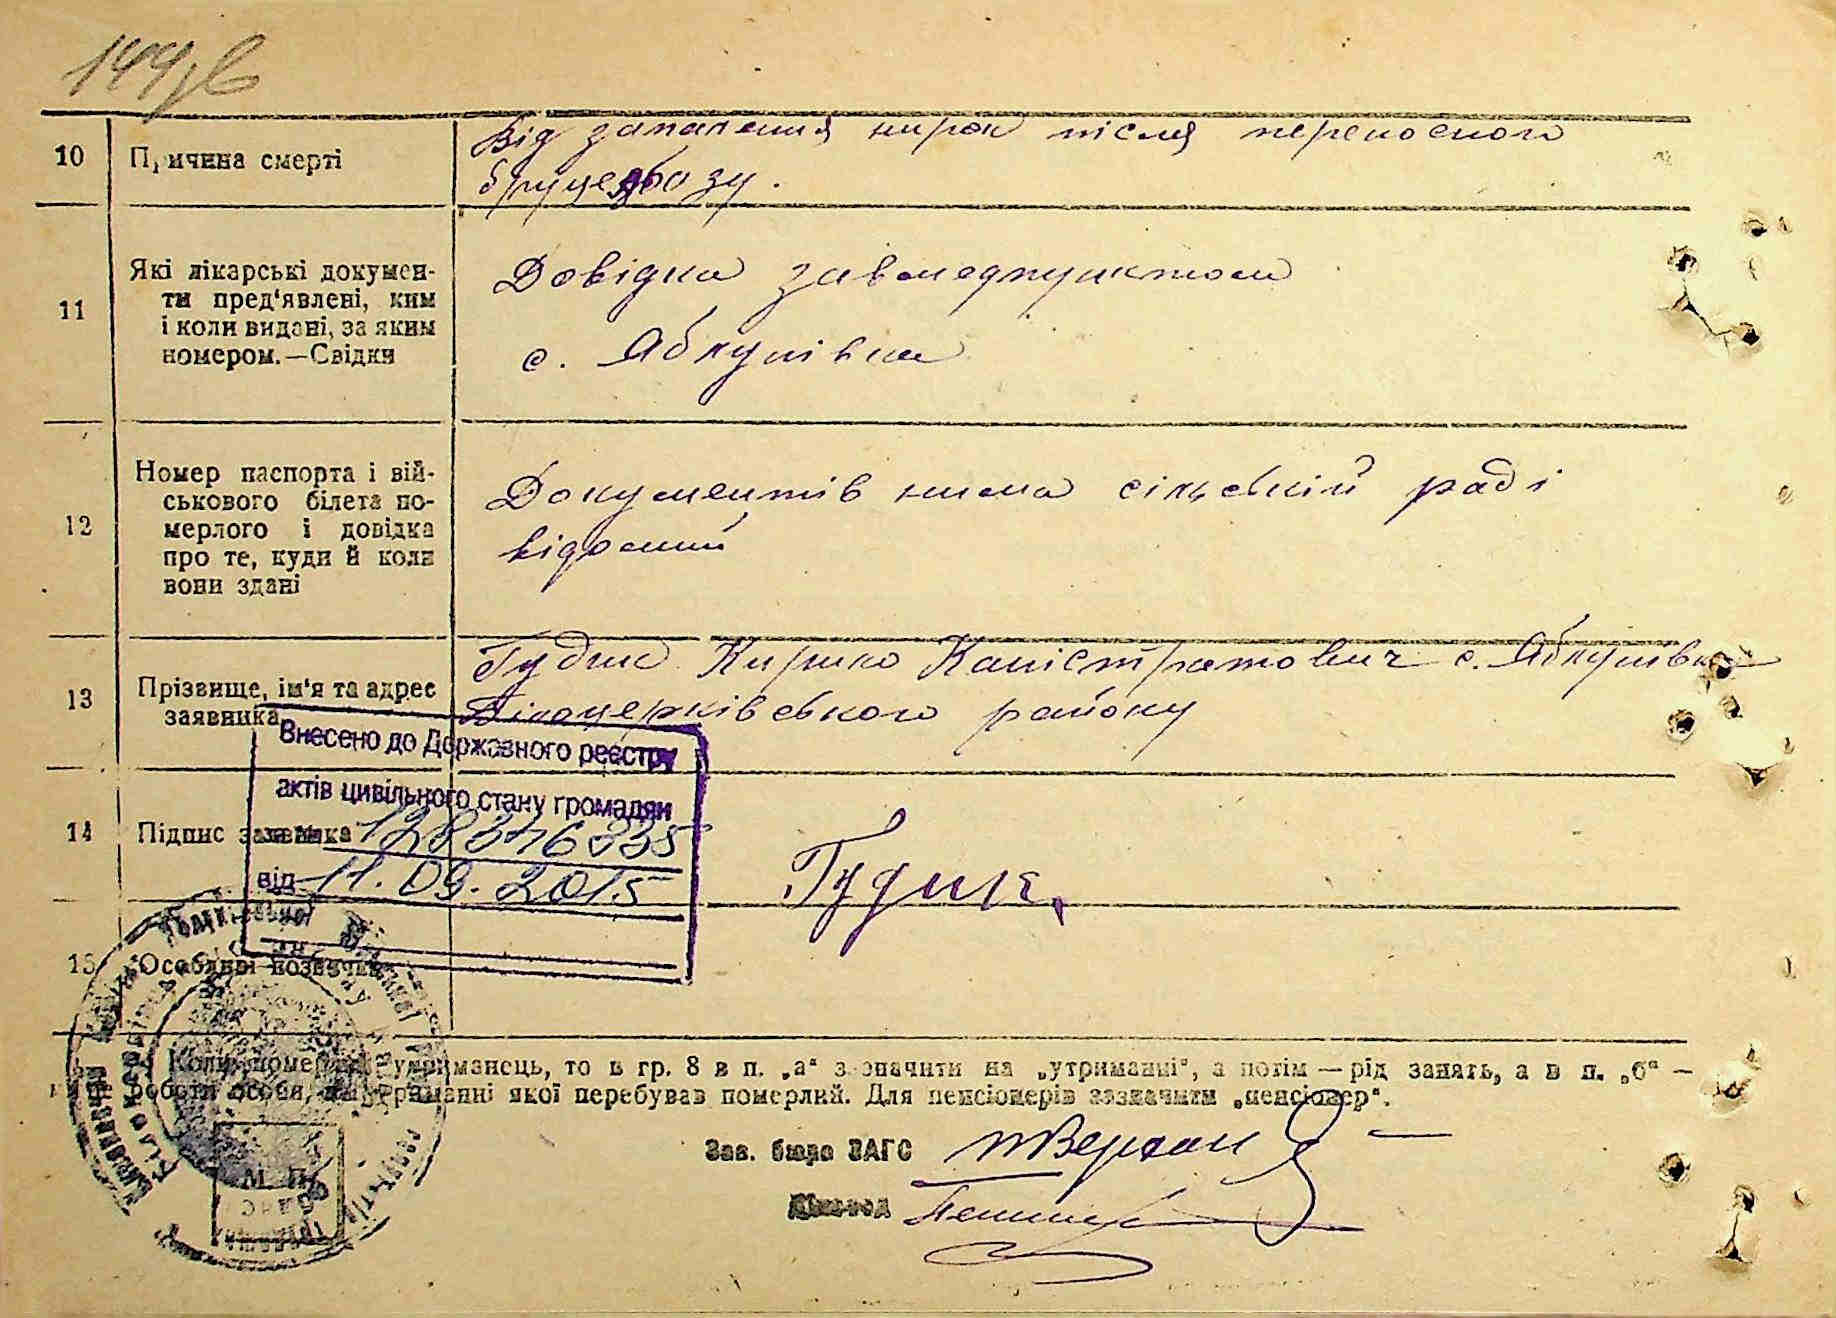 144зв
10
Причина смерті
Від запалення нирок після переносного
бруцельозу.
11
Які лікарські докумен-
ти пред'явлені, ким
і коли видані, за яким
номером.—Свідки
Довідка завмедпунктом
с. Яблунівка
12
Номер паспорта і вій-
ськового білета по-
мерлого і довідка
про те, куди й коли
вони здані
Документів нима сільській раді
відомий
13
Прізвище, ім'я та адрес
заявника
Гудик Кирило Каністратович с. Яблунівка
Білоцерківського району
Внесено до Державного реєстру
актів цивільного стану громадян
за № 128346335
від 11.09.2015
14
Підпис заявника
Гудик
15
Особливі позначки
Коли померлий утриманець, то в гр. 8 в п. „а“ зазначити на „утриманні“, а потім — рід занять, а в п. „б“ —
роботи особи, на утриманні якої перебував померлий. Для пенсіонерів зазначити „пенсіонер“.
Зав. бюро ЗАГС
Діловод
М. П.